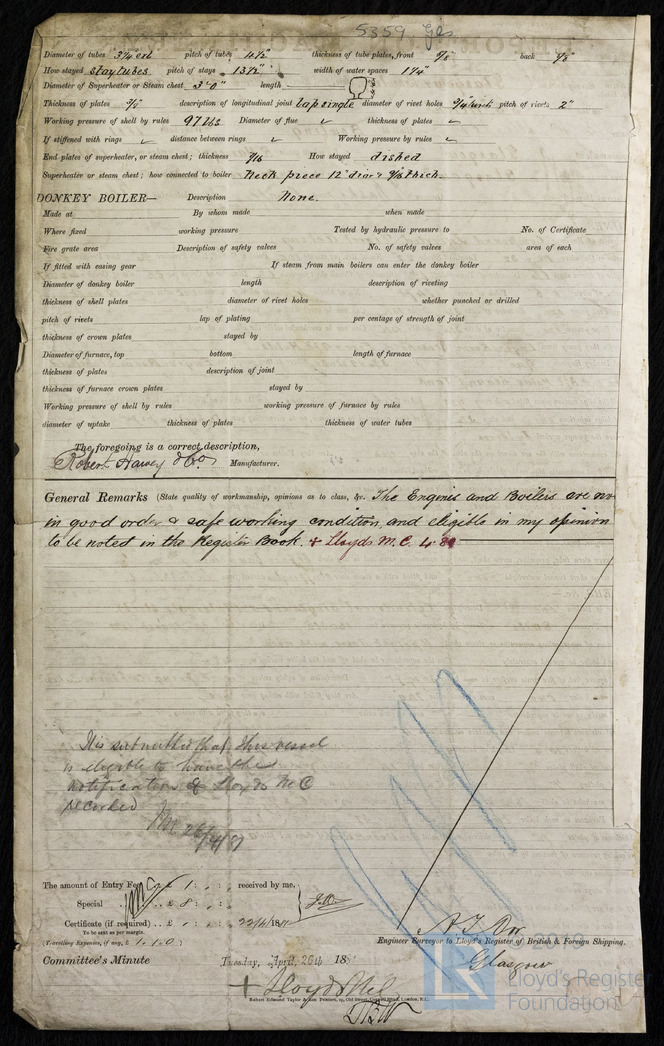 5359 Gls
Diameter of tubes 3¼" ext pitch of tubes 4½" thickness of tube plates, front ⅝" back ⅝"
How stayed stay tubes pitch of stays 13½" width of water spaces 1¼"
Diameter of Superheater or Steam chest 3'0" length
Thickness of plates description of longitudinal joint lap single diameter of rivet holes pitch of rivets 2"
Working pressure of shell by rules 97 lbs Diameter of flue thickness of plates
If stiffened with rings distance between rings Working pressure by rules
End plates of superheater, or steam chest; thickness 7/16 How stayed dished
Superheater or steam chest; how connected to boiler Neck piece 12" diar & thick.
DONKEY BOILER— Description None.
Made at By whom made when made
Where fixed working pressure Tested by hydraulic pressure to No. of Certificate
Fire grate area Description of safety valves No. of safety valves area of each
If fitted with easing gear If steam from main boilers can enter the donkey boiler
Diameter of donkey boiler length description of riveting
thickness of shell plates diameter of rivet holes whether punched or drilled
pitch of rivets lap of plating per centage of strength of joint
thickness of crown plates stayed by
Diameter of furnace, top bottom length of furnace
thickness of plates description of joint
thickness of furnace crown plates stayed by
Working pressure of shell by rules working pressure of furnace by rules
diameter of uptake thickness of plates thickness of water tubes
The foregoing is a correct description,
Robert Harvey & Co. Manufacturer.
General Remarks (State quality of workmanship, opinions as to class, &c. The Engines and Boilers are now
in good order & safe working condition and eligible in my opinion
to be noted in the Register Book. + Lloyds M.C. 4.81
It is submitted that this vessel
is eligible to have the
notification of Lloyds MC
recorded
26/4/81
The amount of Entry Fee £ 1 : : received by me,
Special £ 8 : :
Certificate (if required) £ : : 22/4/18
To be sent as per margin.
(Travelling Expenses, if any, £ 1.1.0)
Engineer Surveyor to Lloyd's Register of British & Foreign Shipping.
Glasgow
Committee's Minute Tuesday, April, 26th 188
+ Lloyds M.C.
Robert Edmund Taylor & Son Printers, 19, Old Street, Goswell Road, London, E.C.
Lloyd's Register
Foundation